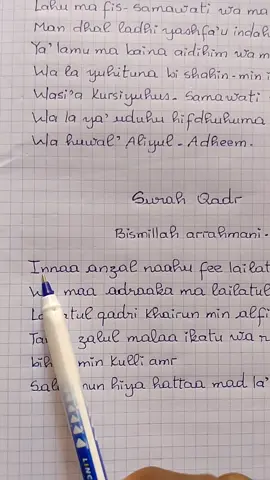 Lahu ma fis-samawati wa ma
Man dhal ladhi yashfa'u indah
Ya'lamu ma baina aidihim wa m
Wa la yuhituna bi shahin-min i
Wasi'a Kursiyuhus-Samawati
Wa la ya'uduhu hifdhuhuma
Wa huwal' Aliyul-Adheem.
Surah Qadr
Bismillah arrahmani-
Innaa anzal naahu fee lailat
maa adraaka ma lailatul
tul qadri khairun min alfi
zalul malaa ikatu wa r
min kulli amr
nun hiya hattaa mad la'
LINC